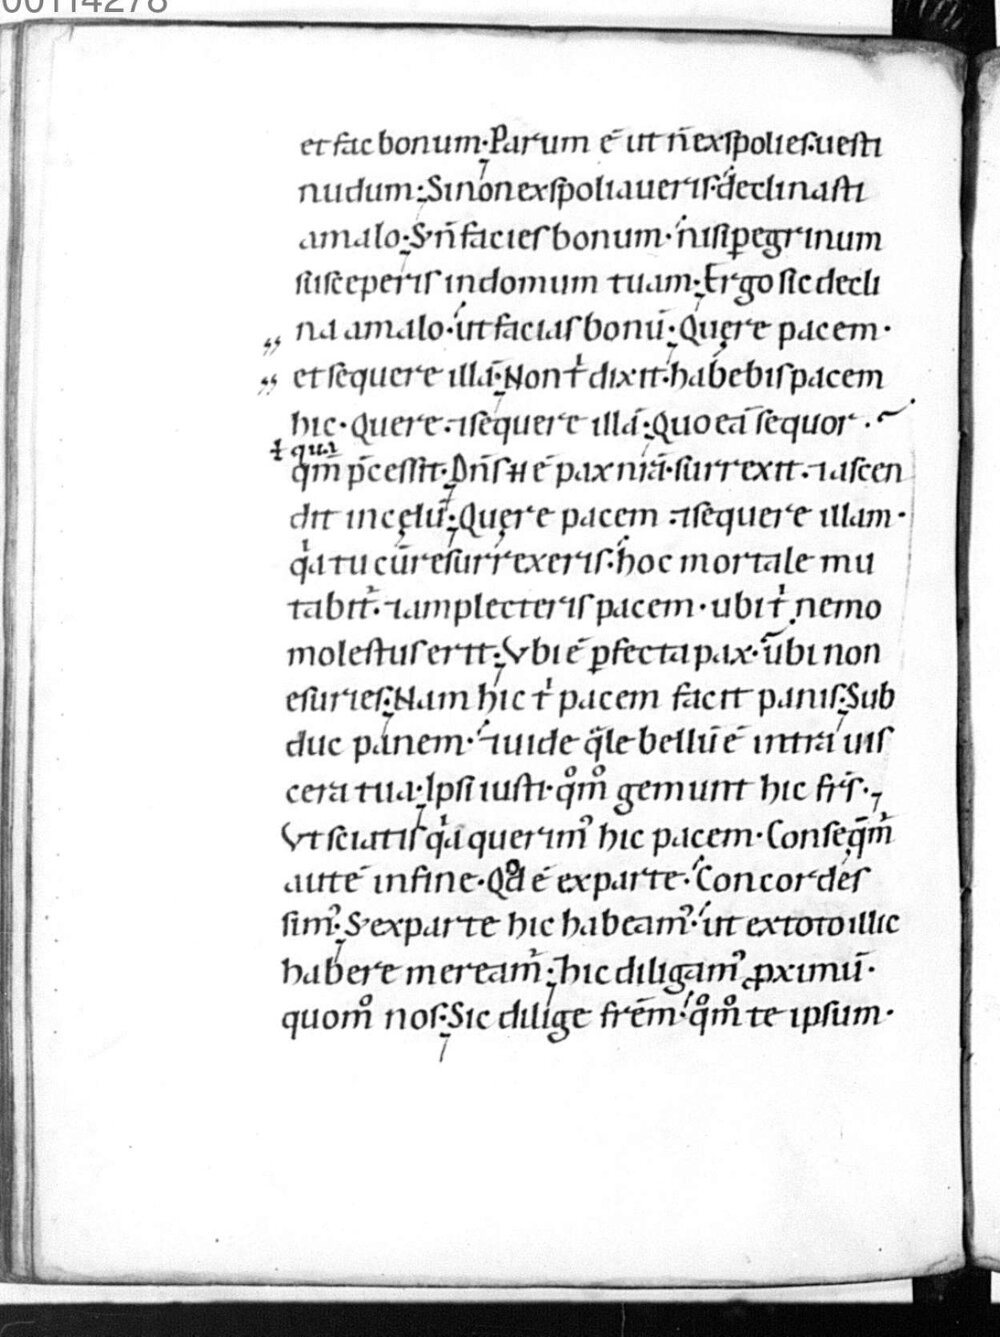 00114278
et fac bonum· Parum ē ut n̄ exspolies· uesti
nudum; Si non exspoliaueris· declinasti
a malo; S; n̄ facies bonum· nisi ꝑegrinum
susceperis in domum tuam; Ergo sic decli
na a malo· ut facias bonū; Quęre pacem·
et sequere illā; Non t̓ dixit· habebis pacem
hic· Quere ⁊ sequere illā; Quo eā sequor·
ł qua
qm̄ p̄cessit; Dn̄s H ē pax nr̄a· surrexit· ⁊ ascen
dit in cęlū; Quęre pacem ⁊ sequere illam·
qͥa tu cū resurrexeris· hoc mortale mu
tabit᷒· ⁊ amplecteris pacem· ubi t̓ nemo
molestus erit; Vbi ē ꝑfecta pax· ubi non
esuries; Nam hic t̓ pacem facit panis; Sub
duc panem· ⁊ uide qͣle bellū ē intra uis
cera tua; Ipsi iusti· qͦmͦ gemunt hic fr̄s·
Vt sciatis qͥa querim᷒ hic pacem· Conseq̄m᷒
autē in fine· Qd ē ex parte· Concordes
sim᷒; S; ex parte hic habeam᷒· ut ex toto illic
habere meream᷒; hic diligam᷒ ꝓximū·
quomͦ nos; Sic dilige frēm· qͦmͦ te ipsum·